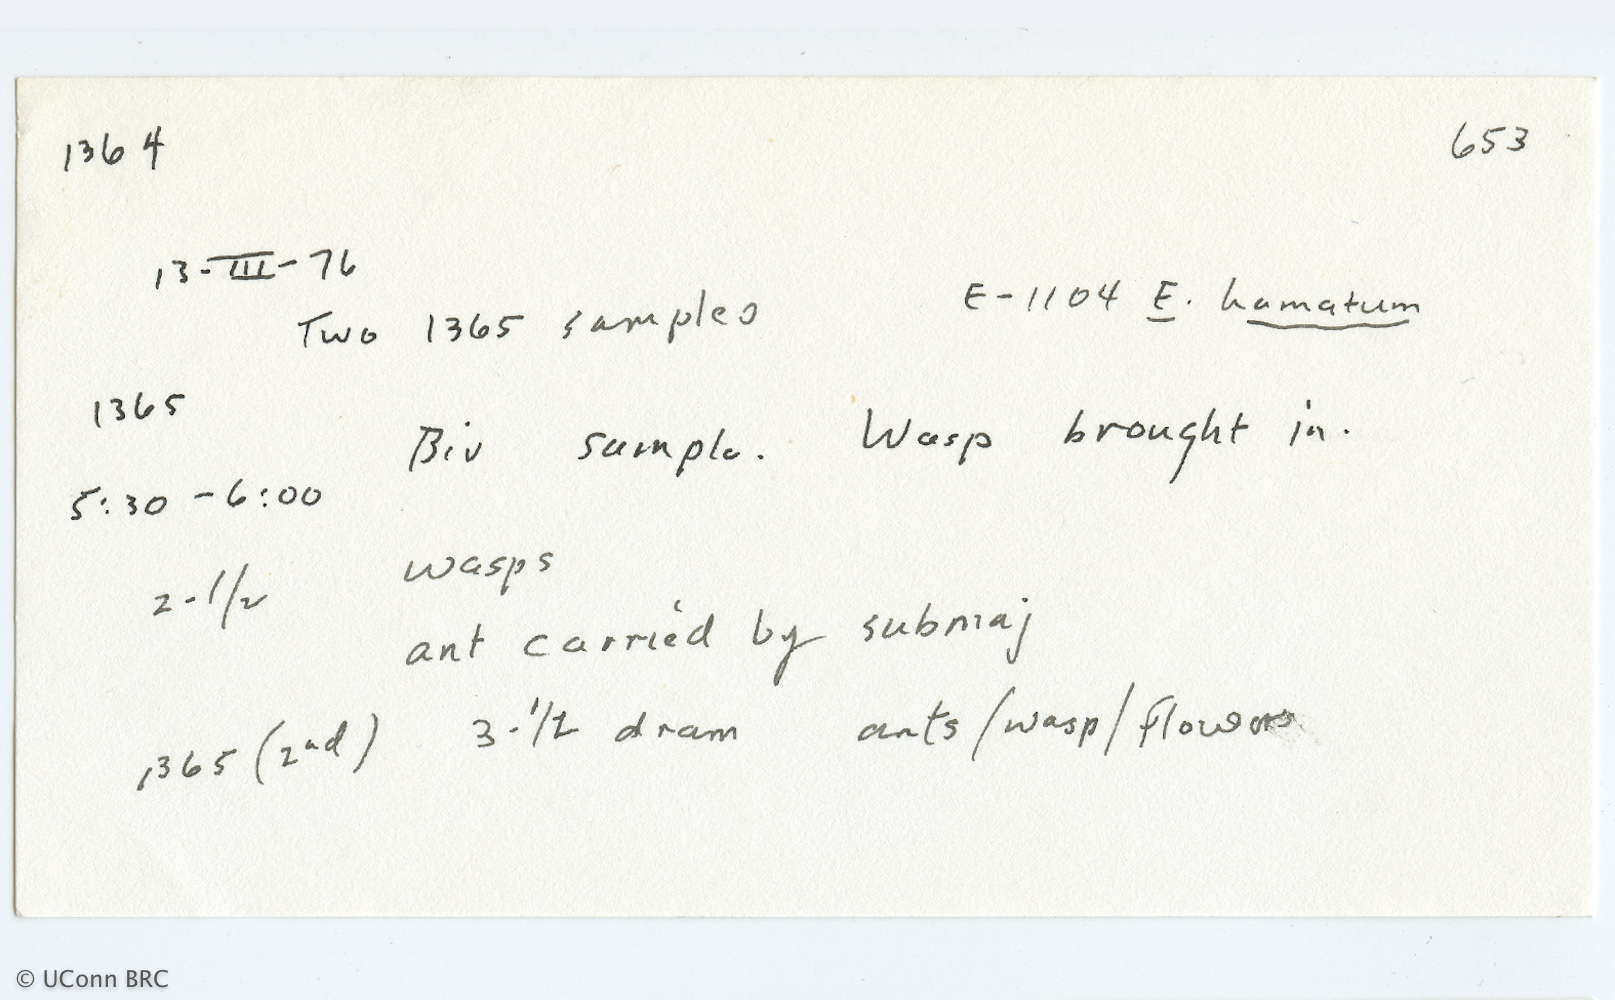 1364 653
13-III-76
Two 1365 samples E-1104 E. hamatum
1365
Biv sample. Wasp brought in.
5:30 - 6:00
2-1/2 wasps
ant carried by submaj
1365 (2nd) 3-1/2 dram ants/wasp/flowers
© UConn BRC